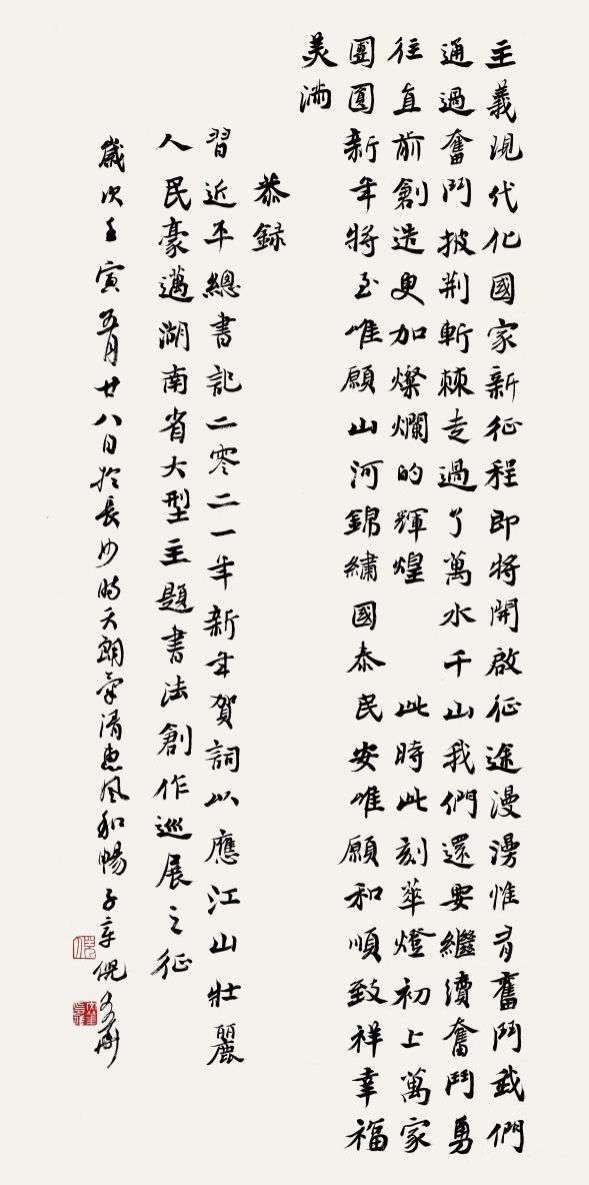 主義現代化國家新征程即將開啟征途漫漫惟有奮鬥我們
通過奮鬥披荆斬棘走過了萬水千山我們還要繼續奮鬥勇
往直前創造更加燦爛的輝煌 此時此刻華燈初上萬家
團圓新年將至唯願山河錦繡國泰民安唯願和順致祥幸福
美滿
恭録
習近平總書記二零二一年新年賀詞以應江山壯麗
人民豪邁湖南省大型主題書法創作巡展之征
歲次壬寅五月廿八日於長沙時天朗氣清惠風和暢子章倪